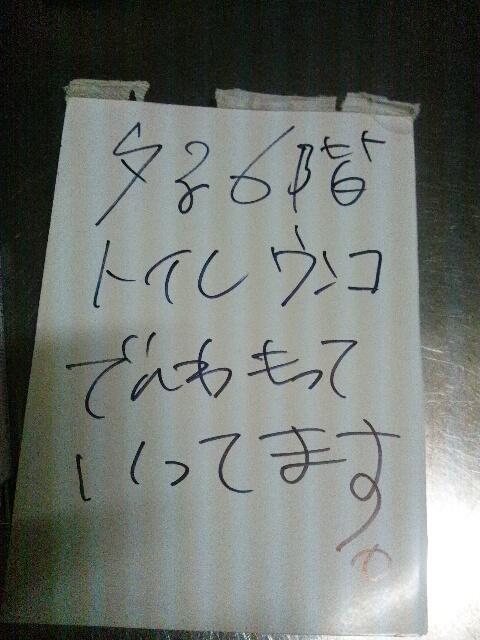 タ子6階
トイレ ウンコ
でんわもって
いってます。